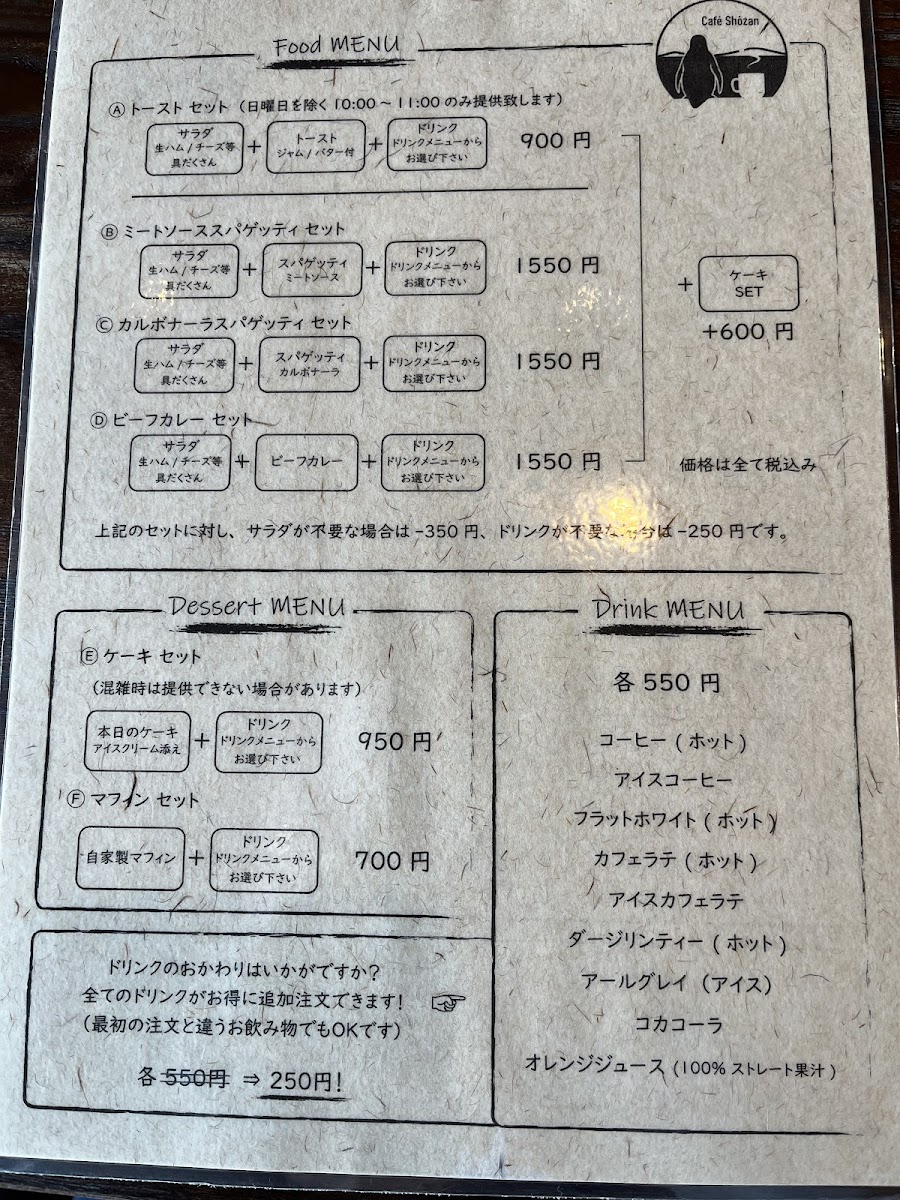 Café Shōzan
Food MENU
Ⓐ トースト セット (日曜日を除く 10:00 ~ 11:00 のみ提供致します)
サラダ
生ハム / チーズ等
具だくさん
+
トースト
ジャム / バター付
+
ドリンク
ドリンクメニューから
お選び下さい
900 円
Ⓑ ミートソーススパゲッティ セット
サラダ
生ハム / チーズ等
具だくさん
+
スパゲッティ
ミートソース
+
ドリンク
ドリンクメニューから
お選び下さい
1550 円
Ⓒ カルボナーラスパゲッティ セット
サラダ
生ハム / チーズ等
具だくさん
+
スパゲッティ
カルボナーラ
+
ドリンク
ドリンクメニューから
お選び下さい
1550 円
Ⓓ ビーフカレー セット
サラダ
生ハム / チーズ等
具だくさん
+
ビーフカレー
+
ドリンク
ドリンクメニューから
お選び下さい
1550 円
+
ケーキ
SET
+600 円
価格は全て税込み
上記のセットに対し、サラダが不要な場合は -350 円、ドリンクが不要な場合は -250 円です。
Dessert MENU
Ⓔ ケーキ セット
(混雑時は提供できない場合があります)
本日のケーキ
アイスクリーム添え
+
ドリンク
ドリンクメニューから
お選び下さい
950 円
Ⓕ マフィン セット
自家製マフィン
+
ドリンク
ドリンクメニューから
お選び下さい
700 円
ドリンクのおかわりはいかがですか?
全てのドリンクがお得に追加注文できます!
(最初の注文と違うお飲み物でもOKです)
各 550円 ⇒ 250円!
Drink MENU
各 550 円
コーヒー ( ホット )
アイスコーヒー
フラットホワイト ( ホット )
カフェラテ ( ホット )
アイスカフェラテ
ダージリンティー ( ホット )
アールグレイ (アイス)
コカコーラ
オレンジジュース (100% ストレート果汁 )